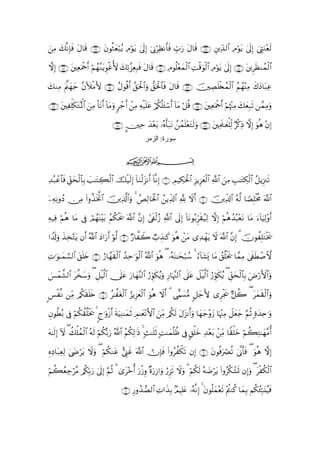 لَعْنَتِىٓ إِلَىٰ يَوْمِ ٱلدِّينِ ۝ قَالَ رَبِّ فَأَنظِرْنِىٓ إِلَىٰ يَوْمِ يُبْعَثُونَ ۝ قَالَ فَإِنَّكَ مِنَ
ٱلْمُنظَرِينَ ۝ إِلَىٰ يَوْمِ ٱلْوَقْتِ ٱلْمَعْلُومِ ۝ قَالَ فَبِعِزَّتِكَ لَأُغْوِيَنَّهُمْ أَجْمَعِينَ ۝ إِلَّا
عِبَادَكَ مِنْهُمُ ٱلْمُخْلَصِينَ ۝ قَالَ فَٱلْحَقُّ وَٱلْحَقَّ أَقُولُ ۝ لَأَمْلَأَنَّ جَهَنَّمَ مِنكَ
وَمِمَّن تَبِعَكَ مِنْهُمْ أَجْمَعِينَ ۝ قُلْ مَآ أَسْـَٔلُكُمْ عَلَيْهِ مِنْ أَجْرٍ وَمَآ أَنَا۠ مِنَ ٱلْمُتَكَلِّفِينَ ۝
إِنْ هُوَ إِلَّا ذِكْرٌ لِّلْعَٰلَمِينَ ۝ وَلَتَعْلَمُنَّ نَبَأَهُۥ بَعْدَ حِينٍۭ ۝
سورة: الزمر
بِسْمِ ٱللَّهِ ٱلرَّحْمَٰنِ ٱلرَّحِيمِ
تَنزِيلُ ٱلْكِتَٰبِ مِنَ ٱللَّهِ ٱلْعَزِيزِ ٱلْحَكِيمِ ۝ إِنَّآ أَنزَلْنَآ إِلَيْكَ ٱلْكِتَٰبَ بِٱلْحَقِّ فَٱعْبُدِ
ٱللَّهَ مُخْلِصًا لَّهُ ٱلدِّينَ ۝ أَلَا لِلَّهِ ٱلدِّينُ ٱلْخَالِصُ ۚ وَٱلَّذِينَ ٱتَّخَذُوا۟ مِن دُونِهِۦٓ
أَوْلِيَآءَ مَا نَعْبُدُهُمْ إِلَّا لِيُقَرِّبُونَآ إِلَى ٱللَّهِ زُلْفَىٰٓ إِنَّ ٱللَّهَ يَحْكُمُ بَيْنَهُمْ فِى مَا هُمْ فِيهِ
يَخْتَلِفُونَ ۗ إِنَّ ٱللَّهَ لَا يَهْدِى مَنْ هُوَ كَٰذِبٌ كَفَّارٌ ۝ لَّوْ أَرَادَ ٱللَّهُ أَن يَتَّخِذَ وَلَدًا
لَّٱصْطَفَىٰ مِمَّا يَخْلُقُ مَا يَشَآءُ ۚ سُبْحَٰنَهُۥ ۖ هُوَ ٱللَّهُ ٱلْوَٰحِدُ ٱلْقَهَّارُ ۝ خَلَقَ ٱلسَّمَٰوَٰتِ
وَٱلْأَرْضَ بِٱلْحَقِّ ۖ يُكَوِّرُ ٱلَّيْلَ عَلَى ٱلنَّهَارِ وَيُكَوِّرُ ٱلنَّهَارَ عَلَى ٱلَّيْلِ ۖ وَسَخَّرَ ٱلشَّمْسَ
وَٱلْقَمَرَ ۖ كُلٌّ يَجْرِى لِأَجَلٍ مُّسَمًّى ۗ أَلَا هُوَ ٱلْعَزِيزُ ٱلْغَفَّٰرُ ۝ خَلَقَكُم مِّن نَّفْسٍ
وَٰحِدَةٍ ثُمَّ جَعَلَ مِنْهَا زَوْجَهَا وَأَنزَلَ لَكُم مِّنَ ٱلْأَنْعَٰمِ ثَمَٰنِيَةَ أَزْوَٰجٍ ۚ يَخْلُقُكُمْ فِى بُطُونِ
أُمَّهَٰتِكُمْ خَلْقًا مِّنۢ بَعْدِ خَلْقٍ فِى ظُلُمَٰتٍ ثَلَٰثٍ ۚ ذَٰلِكُمُ ٱللَّهُ رَبُّكُمْ لَهُ ٱلْمُلْكُ ۖ لَآ إِلَٰهَ
إِلَّا هُوَ ۖ فَأَنَّىٰ تُصْرَفُونَ ۝ إِن تَكْفُرُوا۟ فَإِنَّ ٱللَّهَ غَنِىٌّ عَنكُمْ ۖ وَلَا يَرْضَىٰ لِعِبَادِهِ
ٱلْكُفْرَ ۖ وَإِن تَشْكُرُوا۟ يَرْضَهُ لَكُمْ ۗ وَلَا تَزِرُ وَازِرَةٌ وِزْرَ أُخْرَىٰ ۗ ثُمَّ إِلَىٰ رَبِّكُم مَّرْجِعُكُمْ
فَيُنَبِّئُكُم بِمَا كُنتُمْ تَعْمَلُونَ ۚ إِنَّهُۥ عَلِيمٌۢ بِذَاتِ ٱلصُّدُورِ